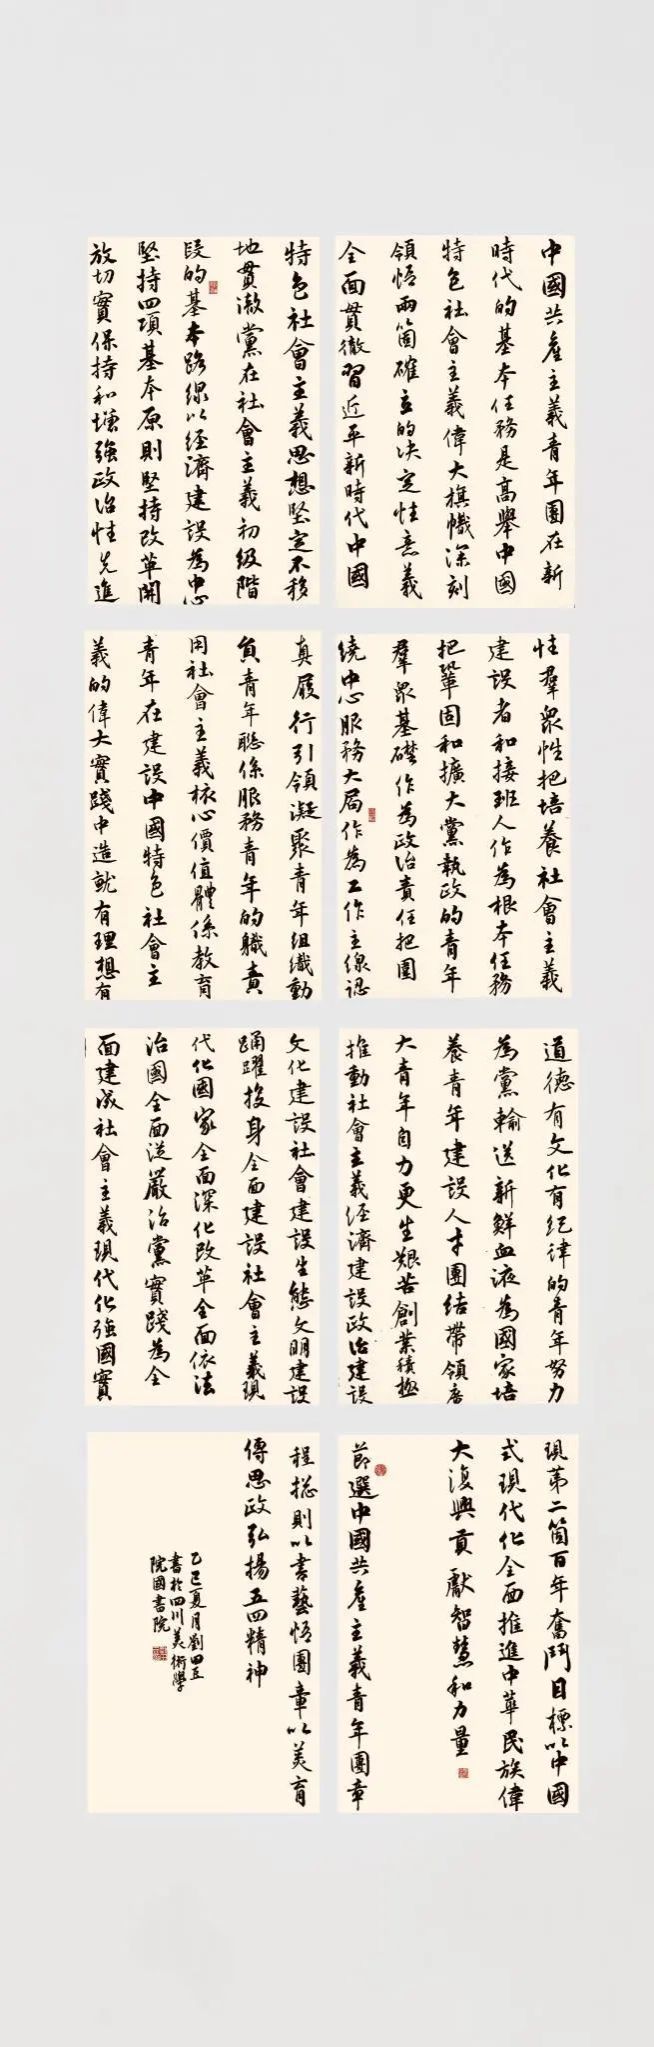 中國共產主義青年團在新
時代的基本任務是高舉中國
特色社會主義偉大旗幟深刻
領悟兩箇確立的決定性意義
全面貫徹習近平新時代中國
特色社會主義思想堅定不移
地貫澈黨在社會主義初級階
段的基本路線以经濟建設為中心
堅持四項基本原則堅持改革開
放切實保持和增強政治性先進
性羣眾性把培養社會主義
建設者和接班人作為根本任務
把鞏固和擴大黨執政的青年
羣眾基礎作為政治責任把圍
繞中心服務大局作為工作主線認
真履行引領凝聚青年組織動
員青年聯係服務青年的職責
用社會主義核心價值體係教育
青年在建設中國特色社會主
義的偉大實踐中造就有理想有
道德有文化有纪律的青年努力
為黨輸送新鮮血液為國家培
養青年建設人才團结帶領廣
大青年自力更生艱苦創業積極
推動社會主義经濟建設政治建設
文化建設社會建設生態文明建設
踊躍投身全面建設社會主義現
代化國家全面深化改革全面依法
治國全面從嚴治黨實踐為全
面建成社會主義現代化強國實
現第二箇百年奮鬥目標以中國
式現代化全面推進中華民族偉
大復興貢獻智慧和力量
節選中國共產主義青年團章
程總則以書藝悟團章以美育
傳思政弘揚五四精神
乙巳夏月劉四五
書於四川美術學
院國書院